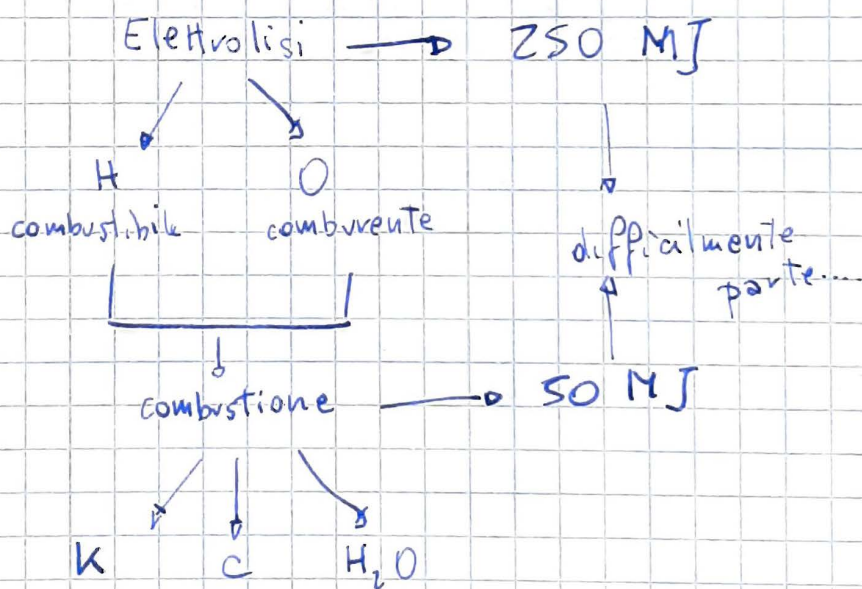 Elettrolisi 250 MJ
H O
combustibile comburente
difficilmente
parte....
combustione 50 MJ
K C H₂O